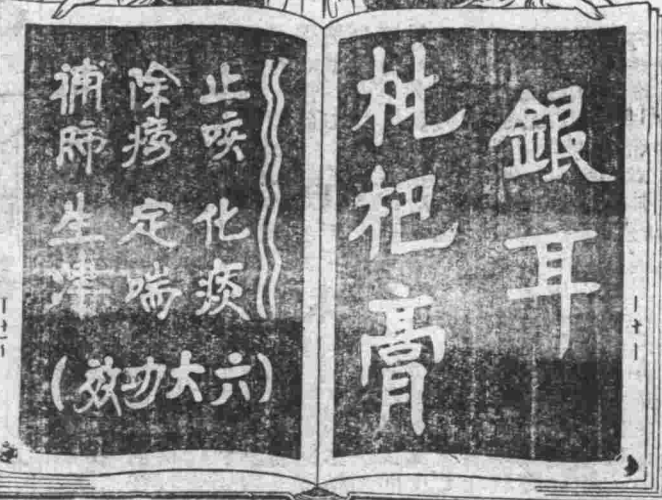 銀耳
枇杷膏
止咳 化痰
除痨 定喘
補肺 生津
(六大功效)